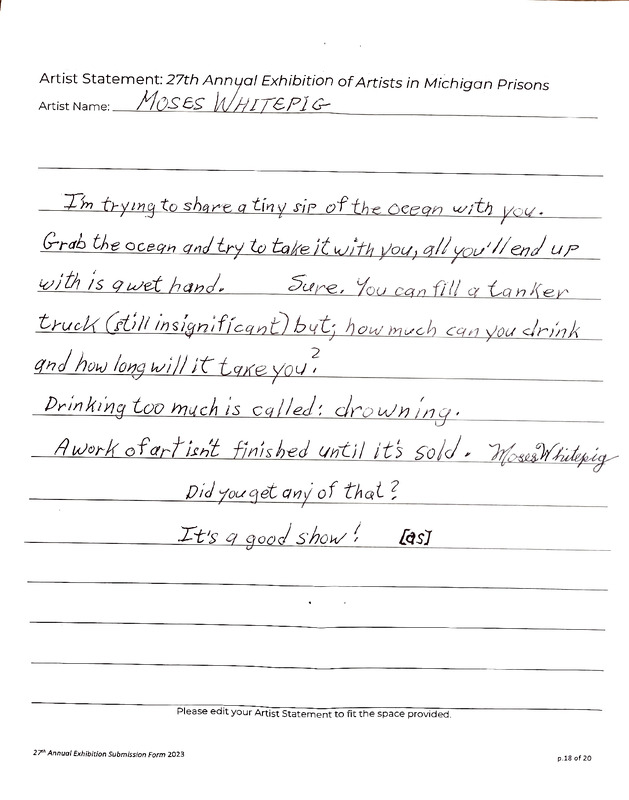 Artist Statement: 27th Annual Exhibition of Artists in Michigan Prisons
Artist Name: MOSES WHITEPIG
I'm trying to share a tiny sip of the ocean with you.
Grab the ocean and try to take it with you, all you'll end up
with is a wet hand. Sure. You can fill a tanker
truck (still insignificant) but; how much can you drink
and how long will it take you?
Drinking too much is called: drowning.
A work of art isn't finished until it's sold. Moses Whitepig
Did you get any of that?
It's a good show! [as]
Please edit your Artist Statement to fit the space provided.
27th Annual Exhibition Submission Form 2023
p.18 of 20